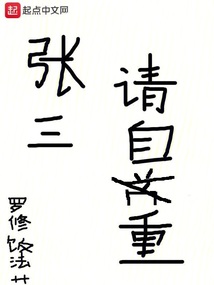 起点中文网
张三
请自重
罗修
法